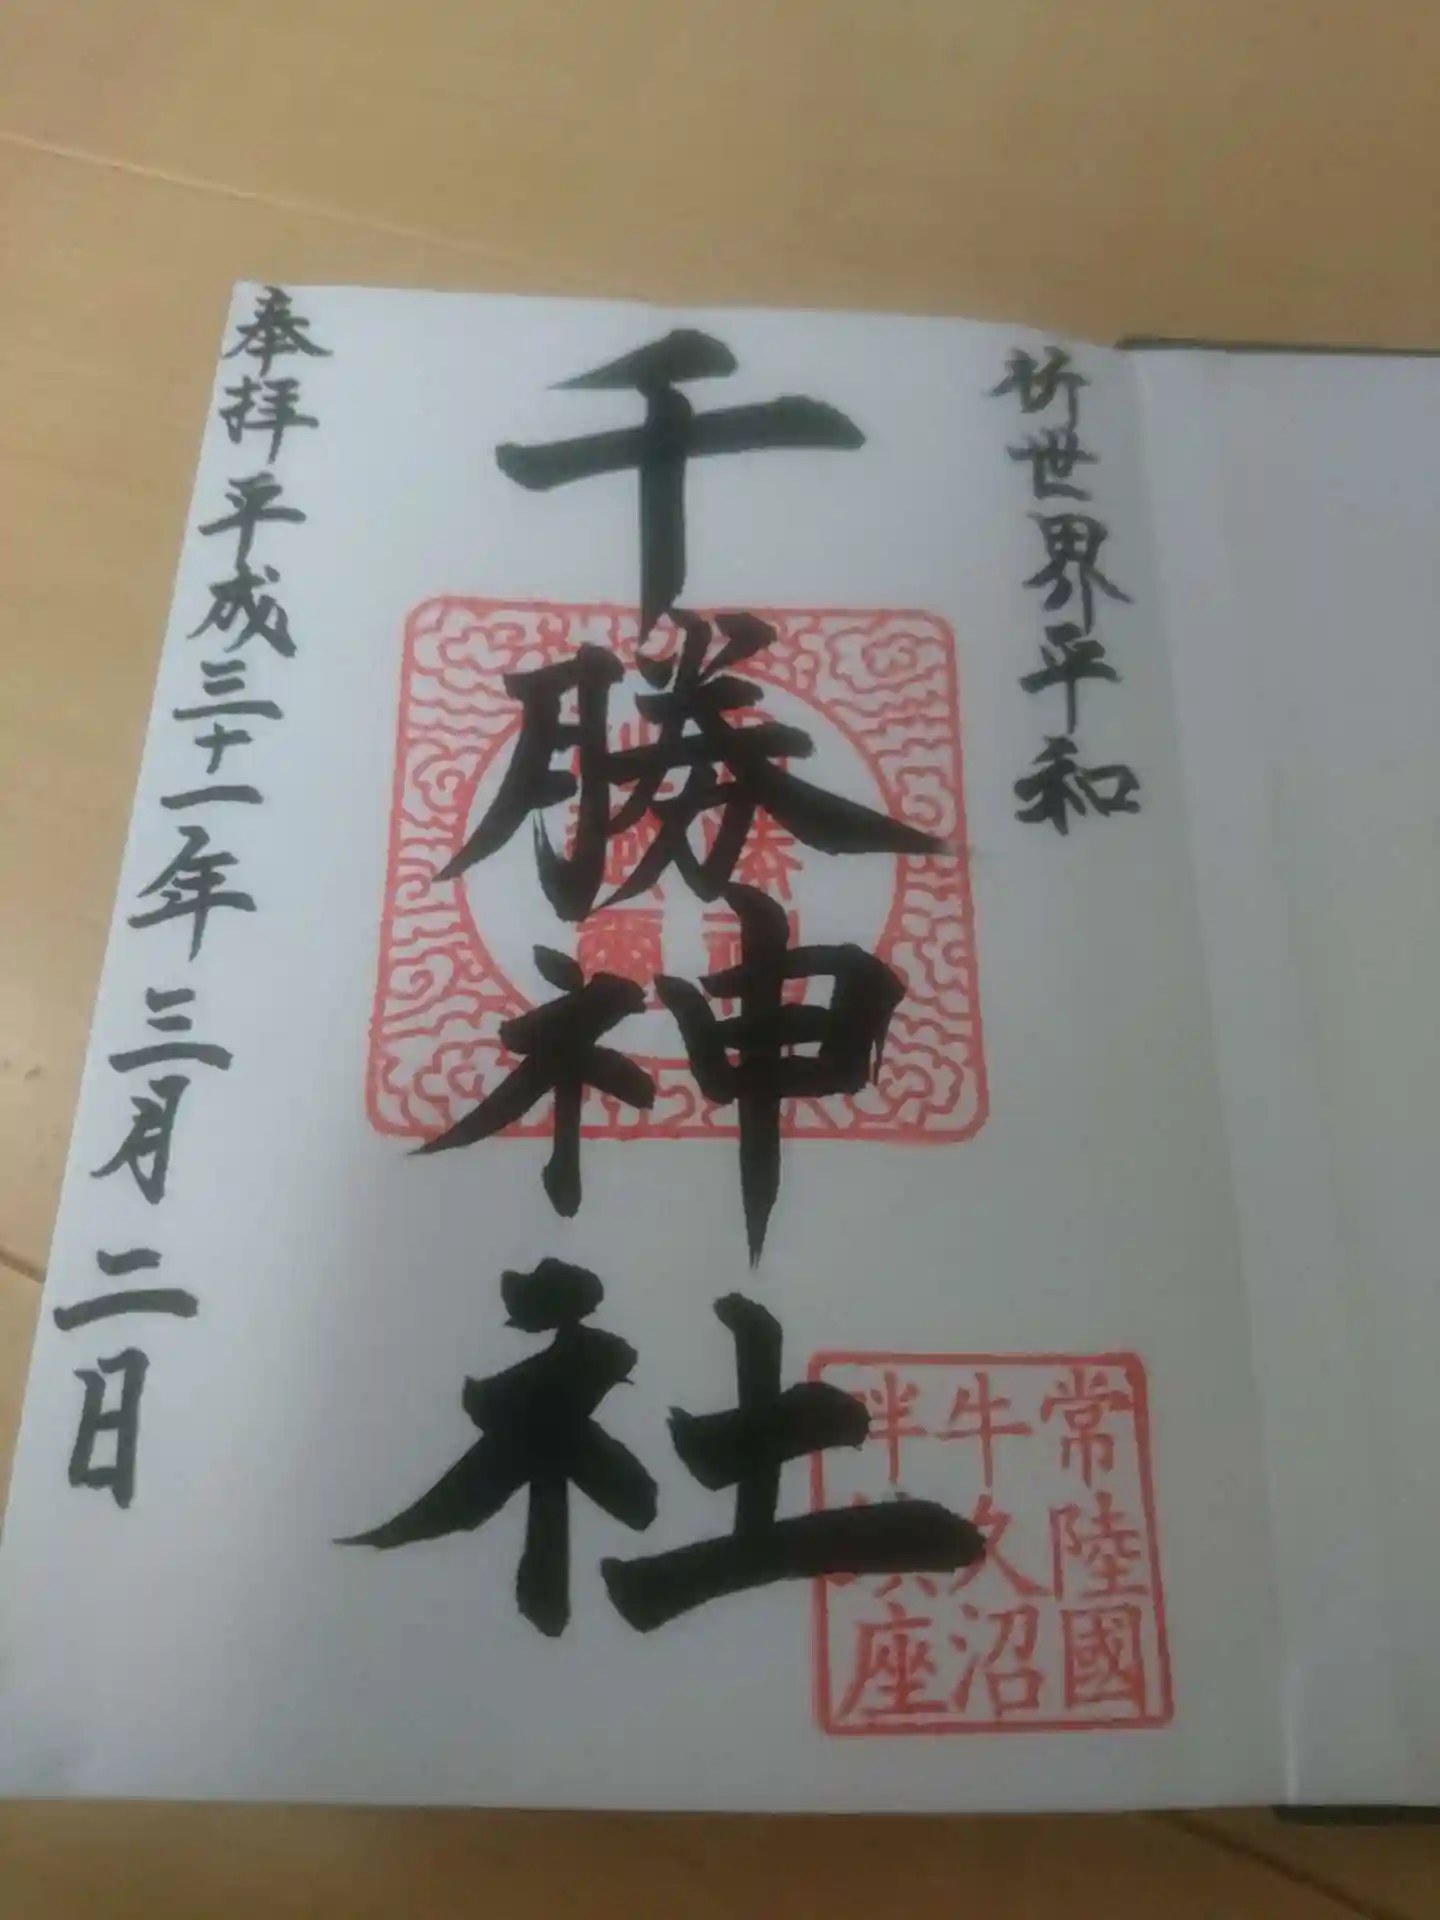 祈世界平和
千勝神社
奉拝 平成三十一年 三月 二日
常陸國
牛久沼
畔 座